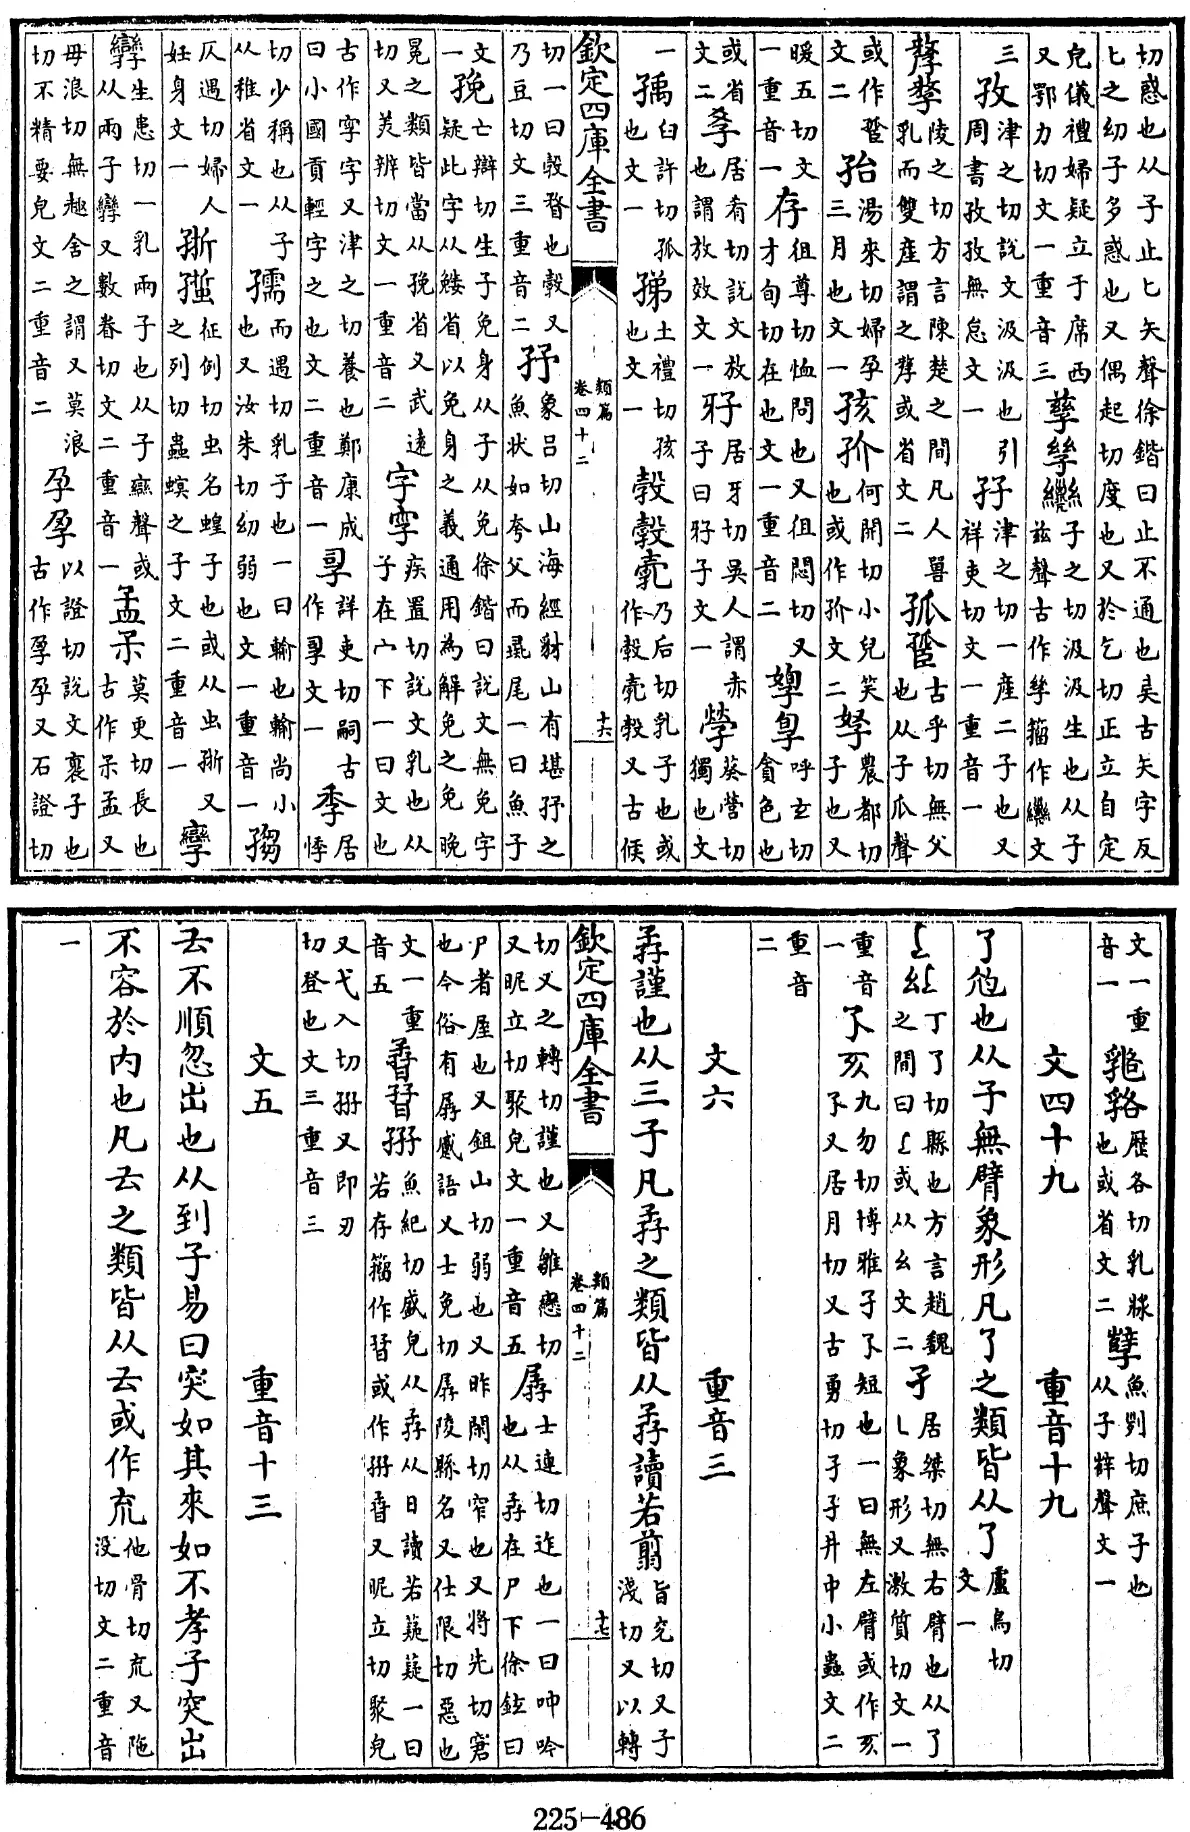 切惑也从子止匕矢聲徐鍇曰止不通也矣古矢字反匕之幼子多惑也又偶起切度也又於乞切正立自定
皃儀禮婦疑立于席西又鄂力切文一重音三孳孶子之切汲汲生也从子兹聲古作孶籀作文
三孜津之切說文汲汲也引周書孜孜無怠文一孖津之切一產二子也又祥吏切文一重音一
孷陵之切方言陳楚之間凡人嘼乳而雙產謂之孷或省文二孤古乎切無父也从子瓜聲
或作文二孡湯來切婦孕三月也文一孩何開切小兒笑也或作文二孥農都切子也又
暖五切文一重音一存徂尊切恤問也又徂悶切又才旬切在也文一重音二呼玄切貪色也
或省文二居肴切說文放也謂放效文一㸧居牙切吳人謂赤子曰㸧子文一葵營切獨也文
一臼許切孤也文一土禮切孩也文一㝅乃后切乳子也或作㝅又古候
欽定四庫全書 類篇 卷四十二 十六
切一曰㝅瞀也㝅又乃豆切文三重音二象呂切山海經豺山有堪之魚狀如夸父而彘尾一曰魚子
文一㝃亡辯切生子免身从子从免徐鍇曰說文無免字疑此字从省以免身之義通用為解免之免晚
冕之類皆當从㝃省又武遠切又美辨切文一重音二字疾置切說文乳也从子在宀下一曰文也
古作字又津之切養也鄭康成曰小國貢輕字之也文二重音一詳吏切嗣古作文一季居悸
切少稱也从子从稚省文一孺而遇切乳子也一曰輸也輸尚小也又汝朱切幼弱也文一重音一
仄遇切婦人妊身文一征例切虫名蝗子也或从虫又之列切蟲螟之子文二重音一孿
孿生患切一乳兩子也从子䜌聲或从兩子孿又數眷切文二重音一孟莫更切長也古作孟又
毋浪切無趣舍之謂又莫浪切不精要皃文二重音二孕以證切說文褱子也古作孕又石證切
文一重音一歷各切乳腺也或省文二孼魚列切庶子也从子辥聲文一
文四十九 重音十九
了尥也从子無臂象形凡了之類皆从了盧鳥切文一
丁了切縣也方言趙魏之間曰或从幺文二孑居桀切無右臂也从了乚象形又激質切文一
重音一孓九勿切博雅孑孓短也一曰無左臂或作孓又居月切又古勇切孑孓井中小蟲文二
重音二
文六 重音三
孨謹也从三子凡孨之類皆从孨讀若翦旨兖切又子淺切又以轉
欽定四庫全書 類篇 卷四十二 十七
切又之轉切謹也又雛戀切又昵立切聚皃文一重音五孱士連切迮也一曰呻吟也从孨在尸下徐鉉曰
尸者屋也又鉏山切弱也又昨閑切窄也又將先切窘也今俗有孱慼語又士免切孱陵縣名又仕限切惡也
文一重音五魚紀切盛皃从孨从日讀若薿薿一曰若存籀作或作又昵立切聚皃
又弋入切又即刃切登也文三重音三
文五 重音十三
𠫓不順忽出也从到子易曰突如其來如不孝子突出
不容於內也凡𠫓之類皆从𠫓或作㐬他骨切㐬又陁沒切文二重音
一
225-486